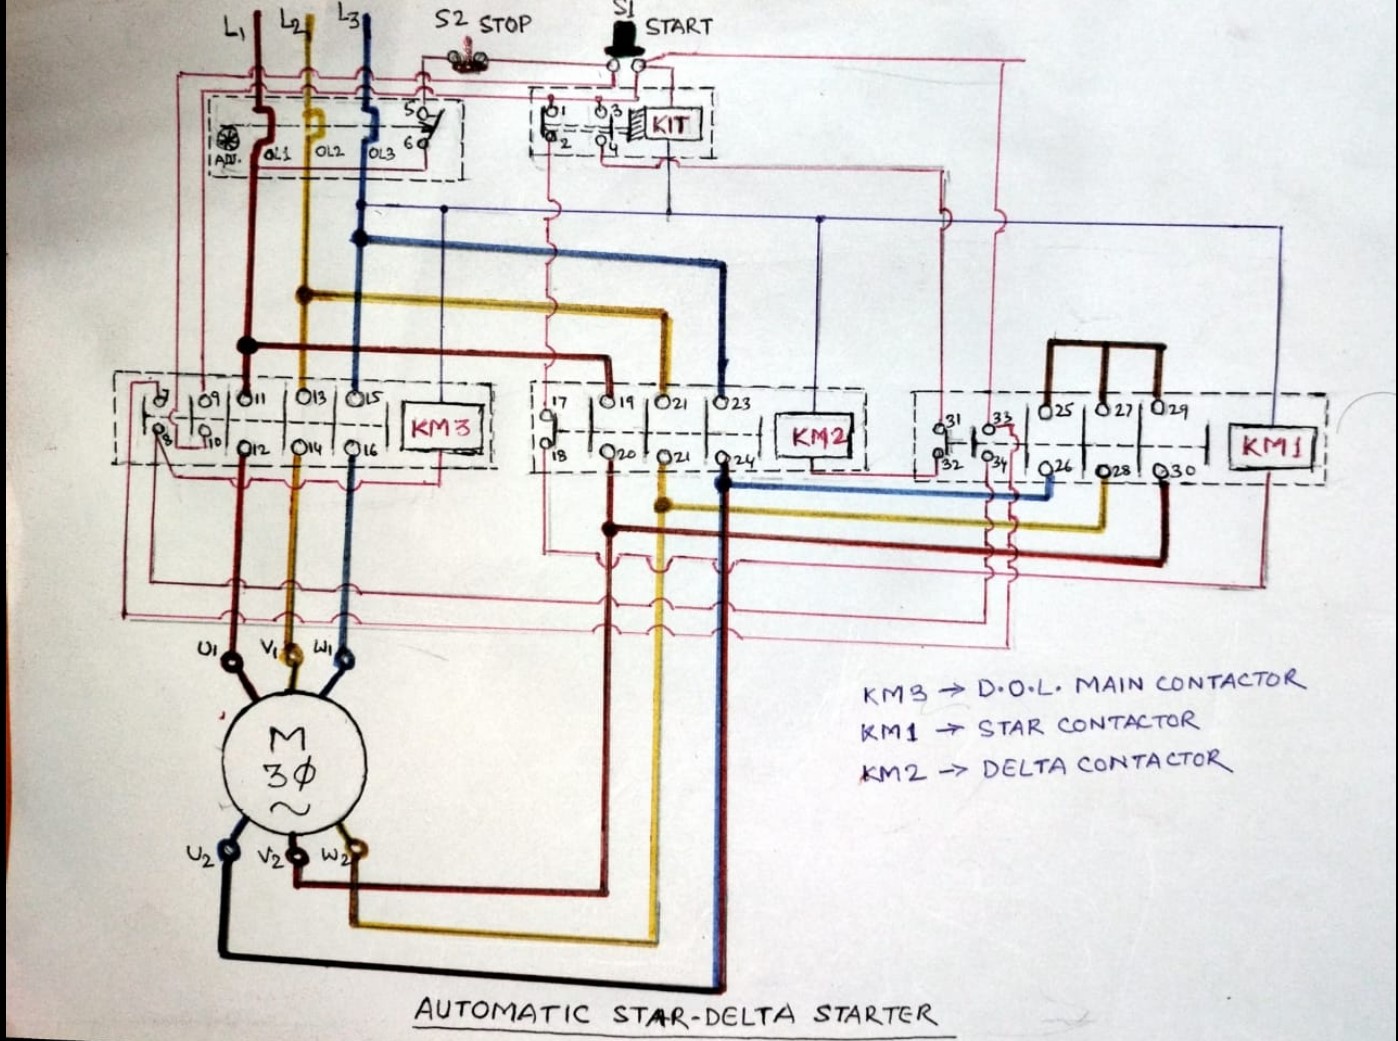 L1 L2 L3 S2 STOP S1 START
5 6 ADJ. OL1 OL2 OL3
1 3 2 4 K1T
7 9 11 13 15 KM3
8 10 12 14 16
17 19 21 23 KM2
18 20 21 24
31 33 25 27 29 KM1
32 34 26 28 30
U1 V1 W1
M
3Ø
~
U2 V2 W2
KM3 → D.O.L. MAIN CONTACTOR
KM1 → STAR CONTACTOR
KM2 → DELTA CONTACTOR
AUTOMATIC STAR-DELTA STARTER